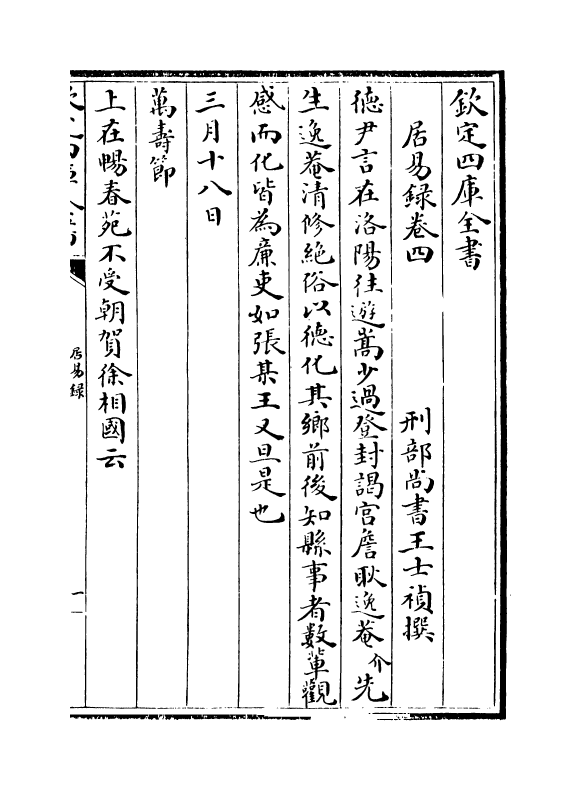 欽定四庫全書
居易錄卷四
刑部尚書王士禎撰
德尹言在洛陽往遊嵩少過登封謁宮詹耿逸菴介先
生逸菴清修絶俗以德化其鄉前後知縣事者數輩觀
感而化皆為廉吏如張某王又旦是也
三月十八日
萬壽節
上在暢春苑不受朝賀徐相國云
居易録
一